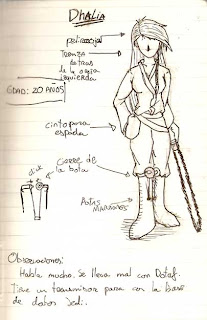 DHALIA
pelirroja
Trenza
detras
de la oreja
izquierda
EDAD: 20 AÑOS
cinto para
espada
Cierre de
la bota
click
Botas
MARRONES
Observaciones:
Habla mucho. Se lleva mal con Dotaf.
Tiene un transmisor para con la base
de datos Jedi.